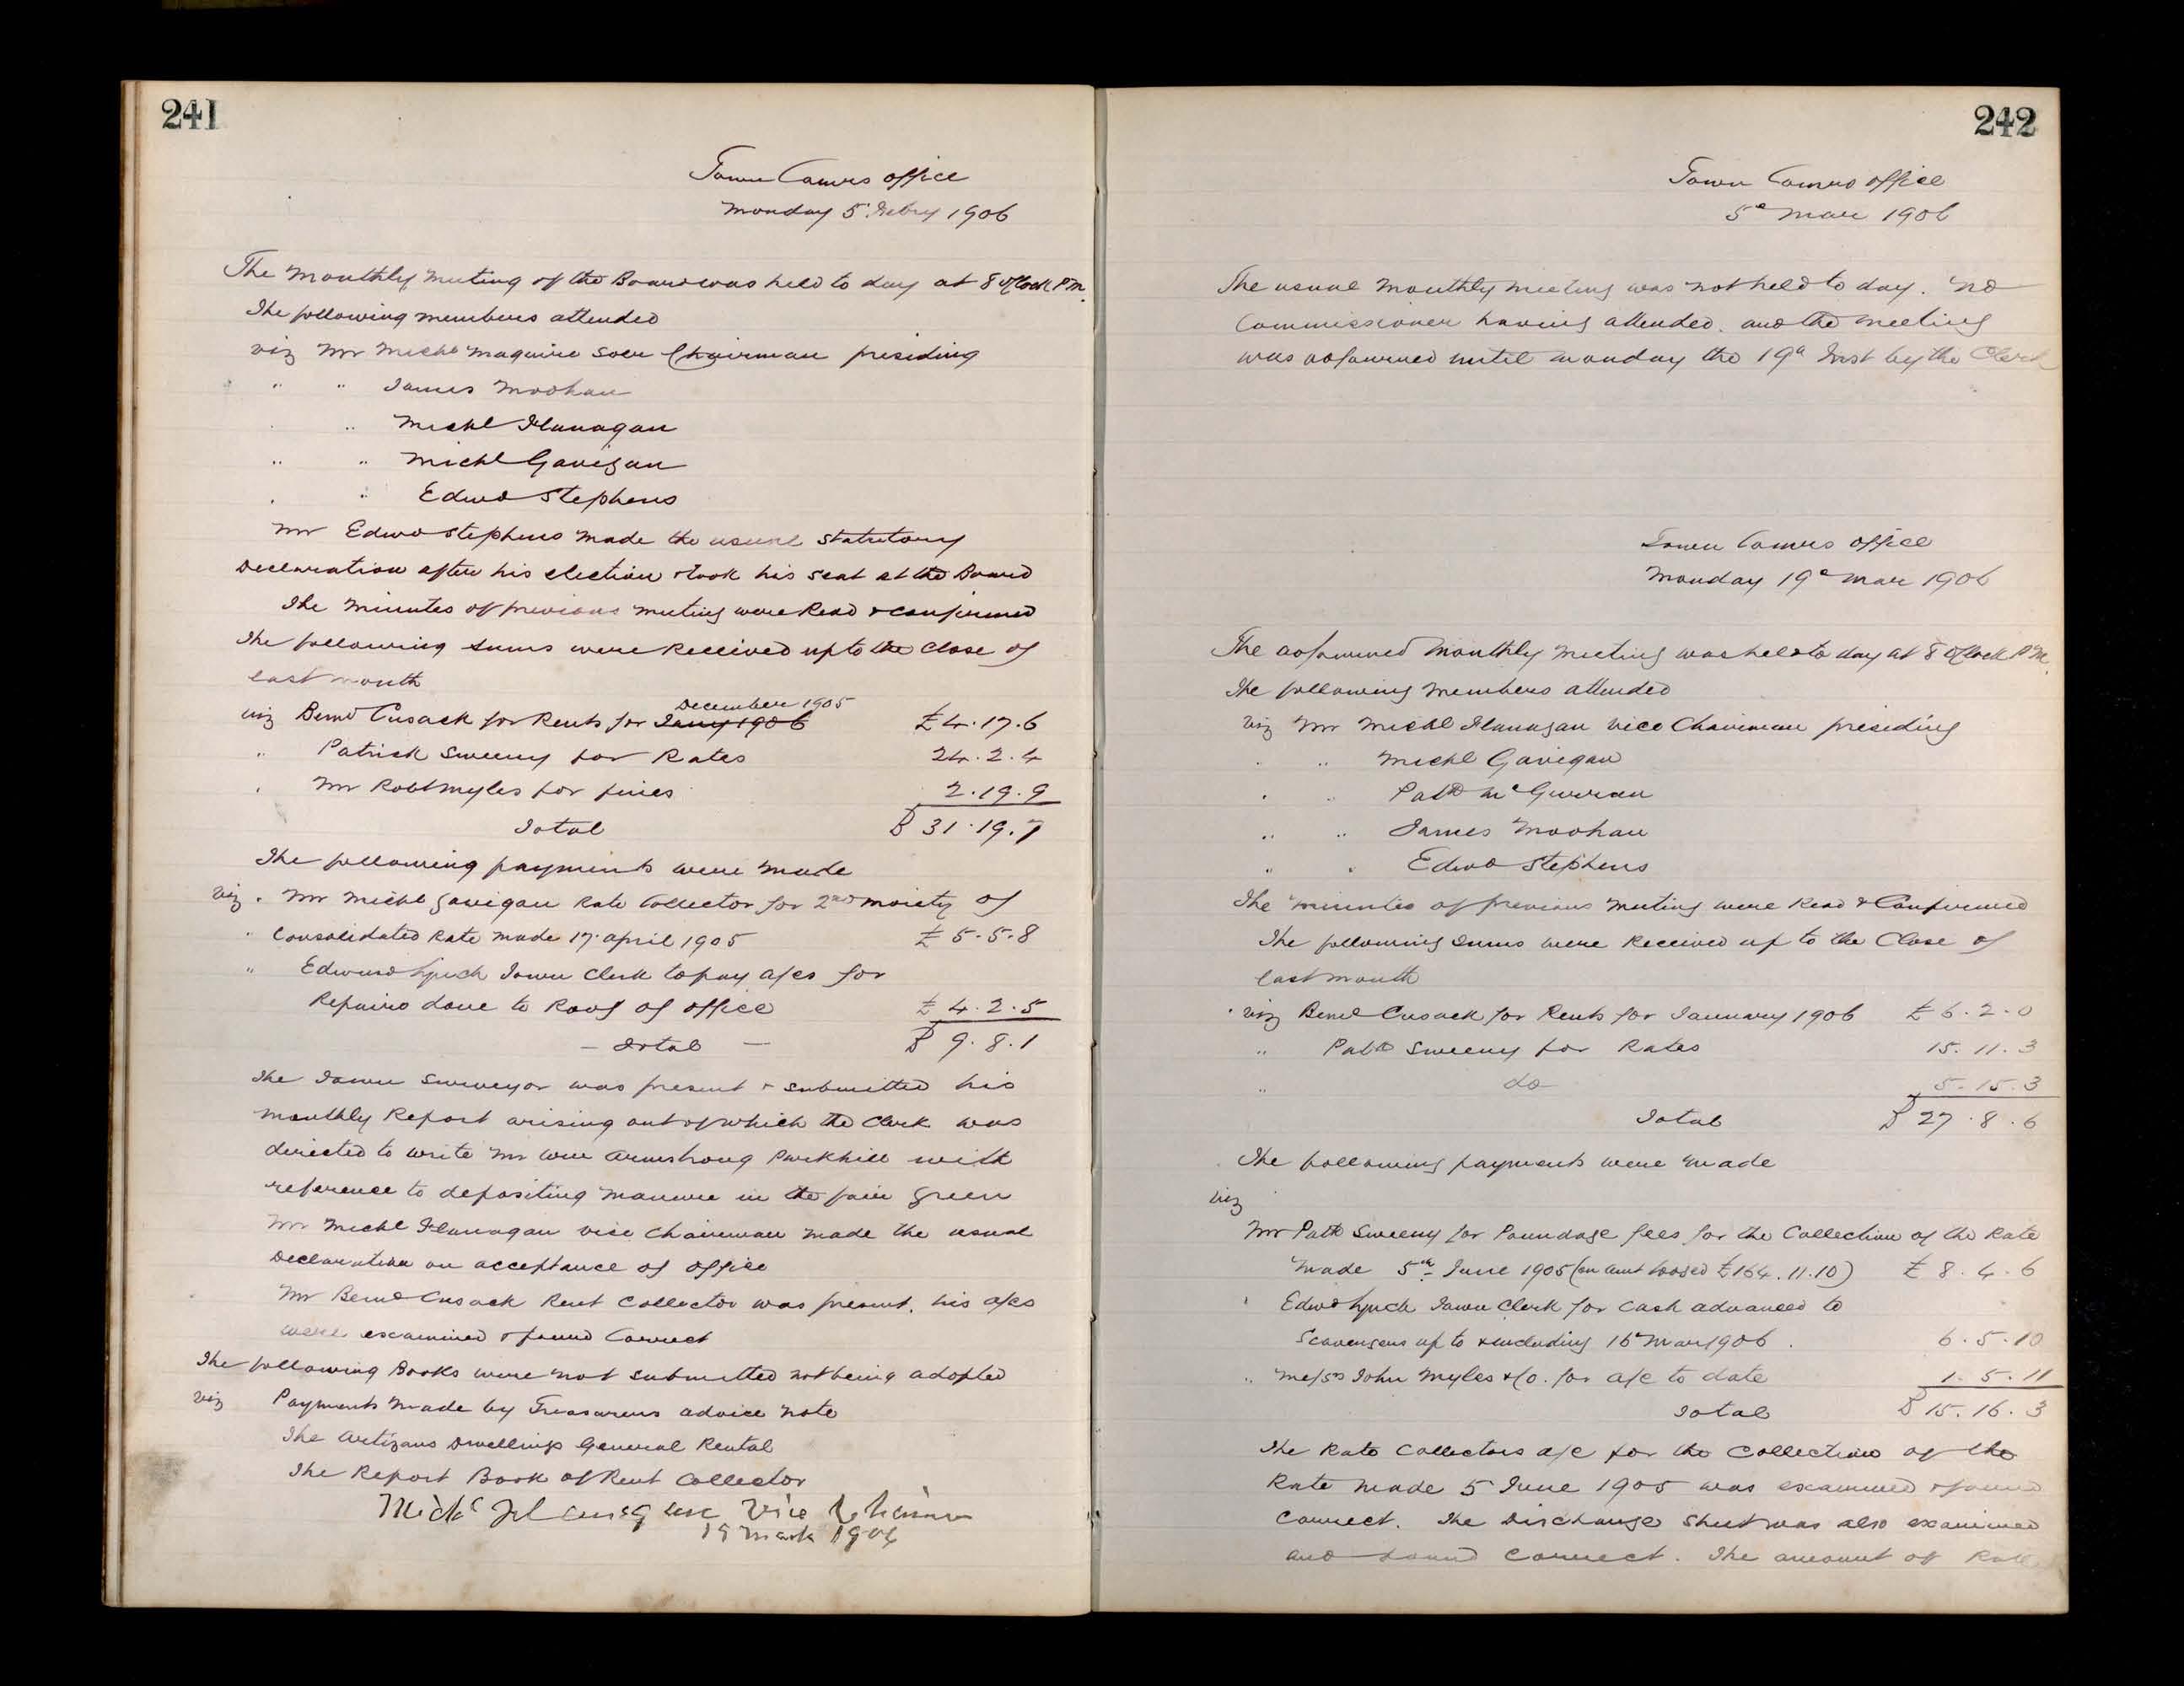 241
Town Comrs office
Monday 5 Feby 1906
The monthly meeting of the Board was held to day at 8 oClock P.M.
The following members attended
viz Mr Michl Maguire Senr Chairman presiding
" " James Moohan
" Michl Flanagan
" " Michl Gavigan
" Edwd Stephens
Mr Edwd Stephens made the usual statutory
Declaration after his election & took his seat at the Board
The minutes of previous meeting were Read & confirmed
The following sums were Received up to the Close of
last month
December 1905
viz Bernd Cusack for Rents for Jany 1906 £4.17.6
" Patrick Sweeny for Rates 24.2.4
" Mr Robt Myles for fines 2.19.9
Total £ 31.19.7
The following payments were made
viz. Mr Michl Gavigan Rate Collector for 2nd moiety of
" Consolidated Rate made 17 April 1905 £ 5.5.8
" Edward Lynch Town Clerk to pay a/cs for
Repairs done to Roof of office £ 4.2.5
— Total — £ 9.8.1
The Town Surveyor was present & submitted his
monthly Report arising out of which the Clerk was
directed to write Mr Wm Armstrong Parkhill with
reference to depositing manure in the fair green
Mr Michl Flanagan vice Chairman made the usual
Declaration on acceptance of office
Mr Bernd Cusack Rent Collector was present. his a/cs
were examined & found Correct
The following Books were not submitted not being adopted
viz Payments made by Treasurers advice note
The Artizans Dwellings General Rental
The Report Book of Rent Collector
Michl Flanagan Vice Chairman
19 March 1906
242
Town Comrs office
5e Mar 1906
The usual monthly meeting was not held to day. No
Commissioner having attended. and the meeting
was adjourned until monday the 19th Inst by the Clerk
Town Comrs office
Monday 19e Mar 1906
The adjourned monthly meeting was held to day at 8 oClock P.M.
The following members attended
viz Mr Michl Flanagan Vice Chairman presiding
" " Michl Gavigan
" " Patk McGurran
" " James Moohan
" " Edwd Stephens
The minutes of previous meeting were Read & Confirmed
The following sums were Received up to the Close of
last month
viz Bernd Cusack for Rents for January 1906 £ 6.2.0
" Patk Sweeny for Rates 15.11.3
" do 5.15.3
Total £ 27.8.6
The following payments were made
viz
Mr Patk Sweeny for Poundage fees for the Collection of the Rate
made 5th June 1905 (on amt lodged £164.11.10) £ 8.4.6
" Edwd Lynch Town Clerk for cash advanced to
Scavengers up to & including 16e Mar 1906. 6.5.10
" Messrs John Myles & Co. for a/c to date 1.5.11
Total £ 15.16.3
The Rate Collectors a/c for the Collection of the
Rate made 5 June 1905 was examined & found
Correct. The Discharge Sheet was also examined
and found Correct. The amount of Rate